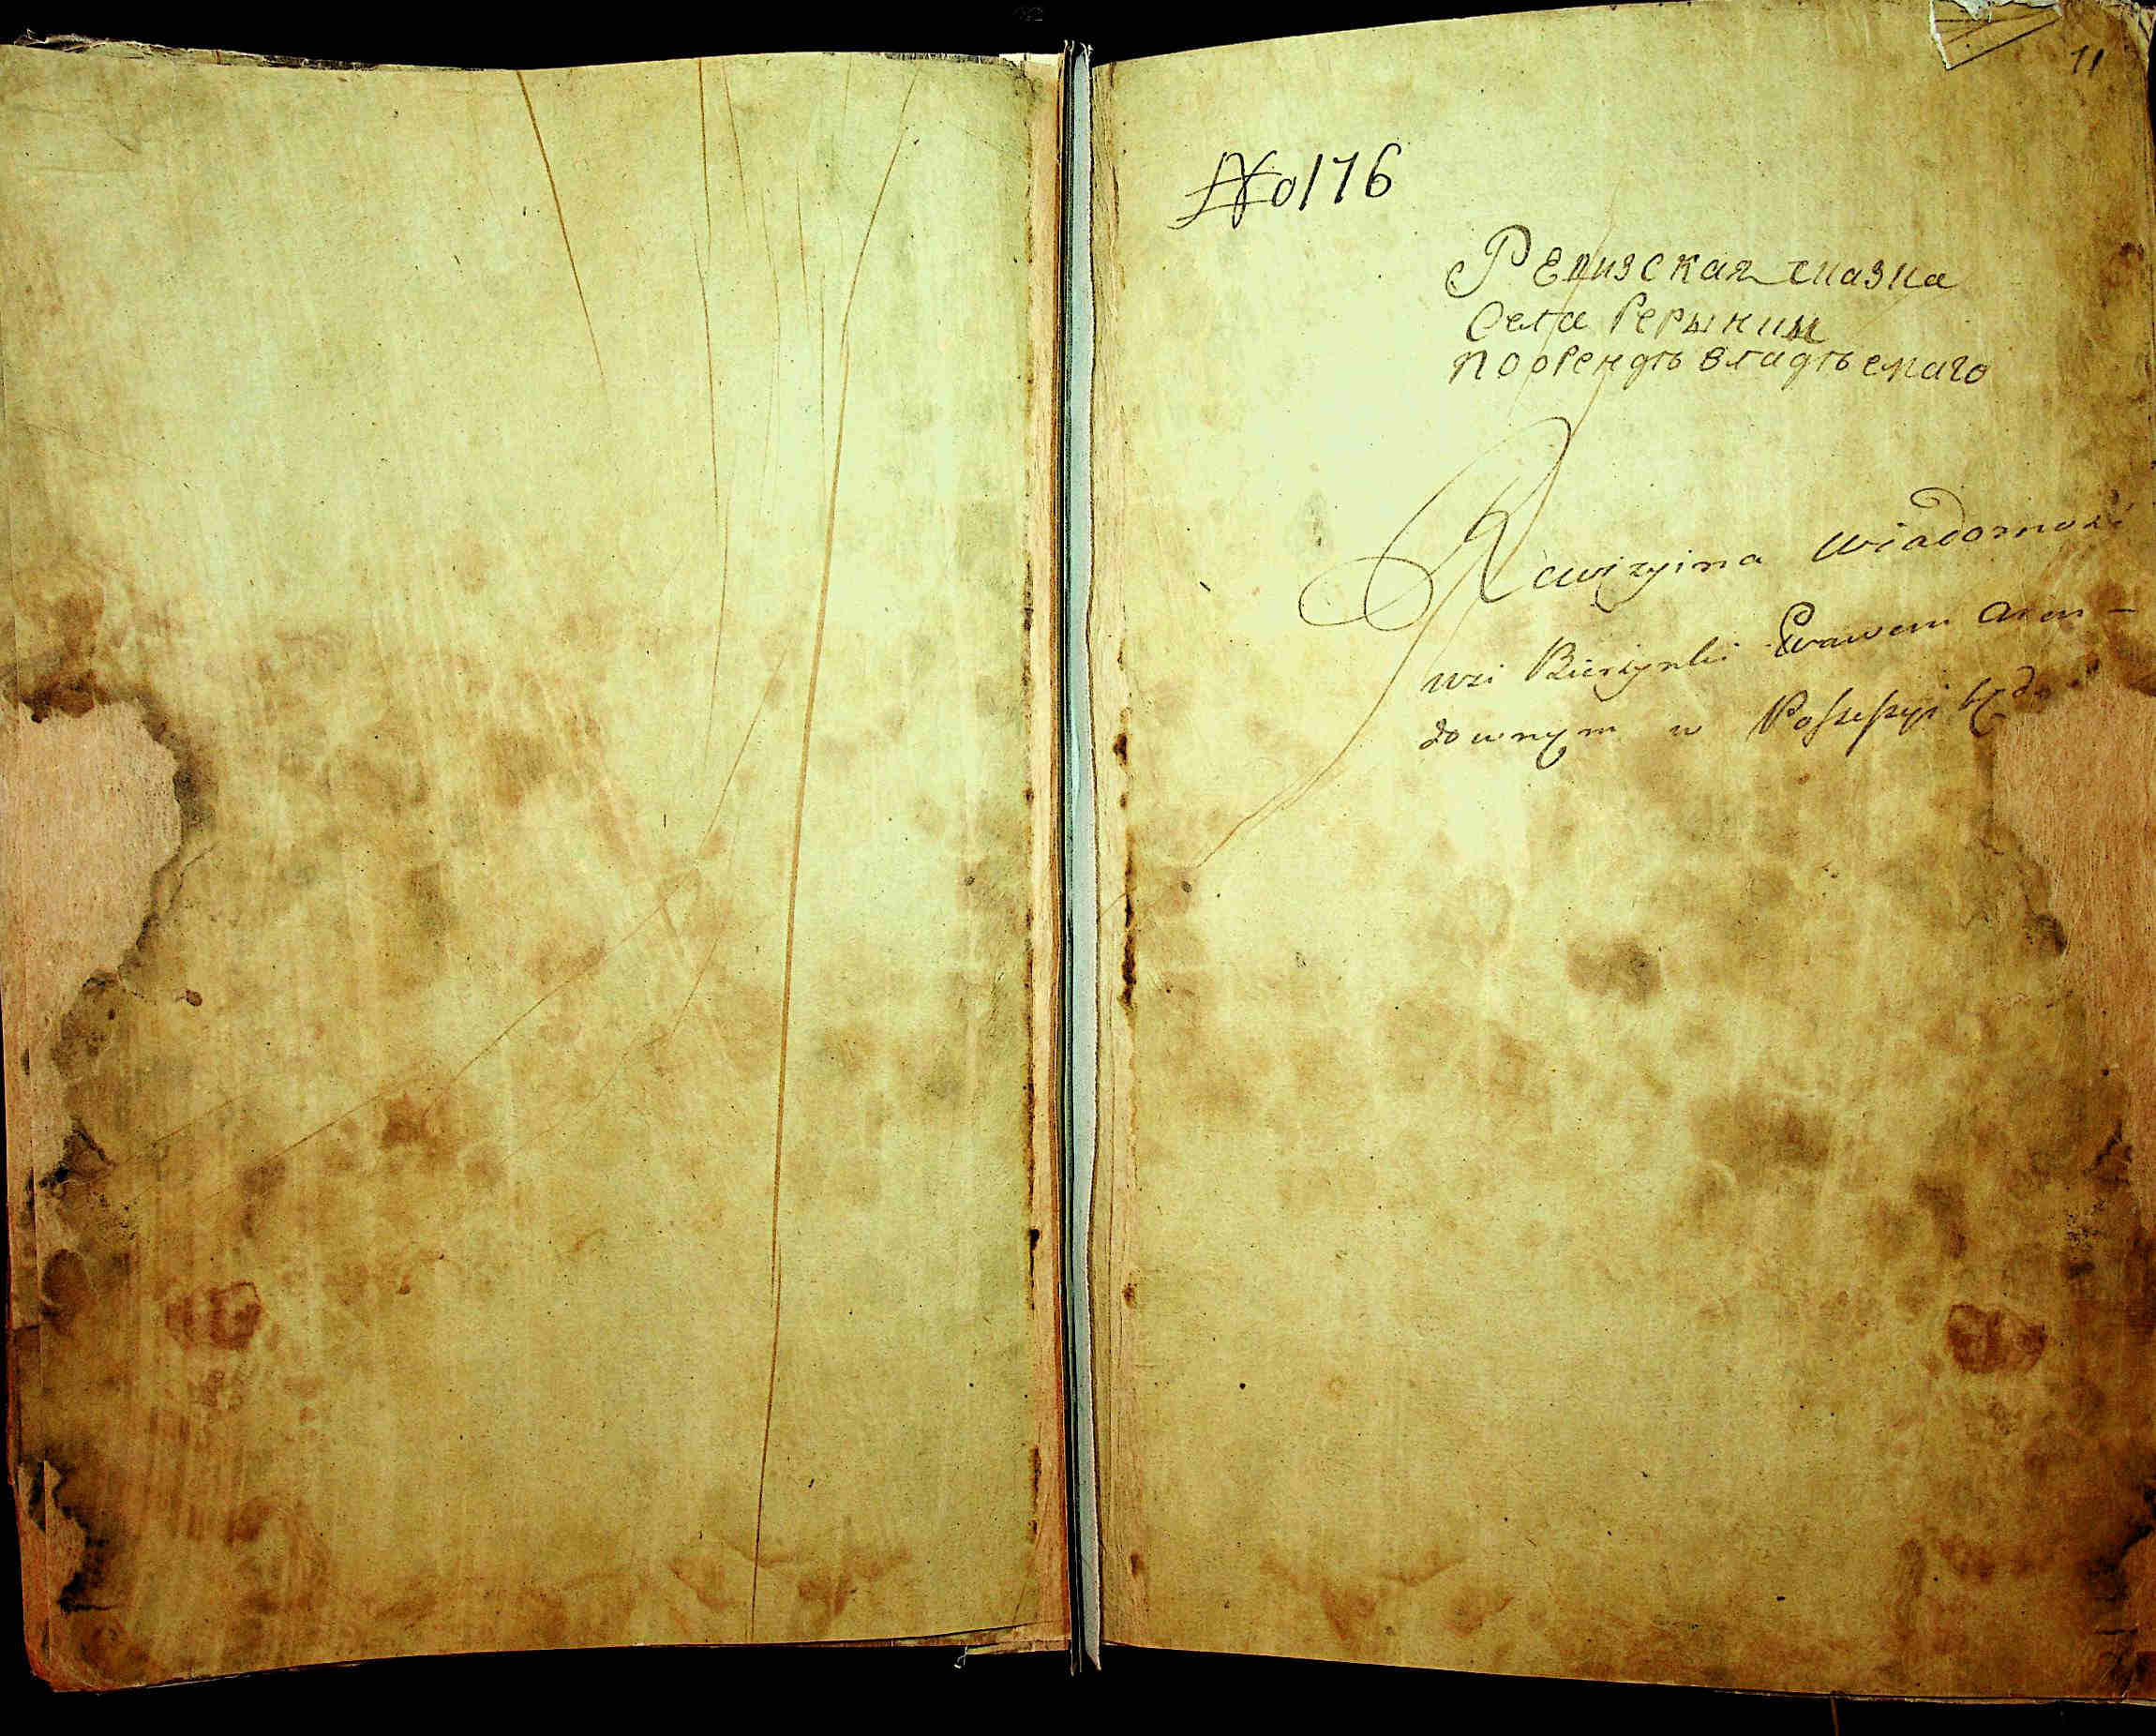 11
№ 176
Ревизская сказка
Села Берынки
по оренде владѣемаго
Rewizyina Wiadomość
wsi Bierzynki Prawem Aren-
downym w Possessyi będą